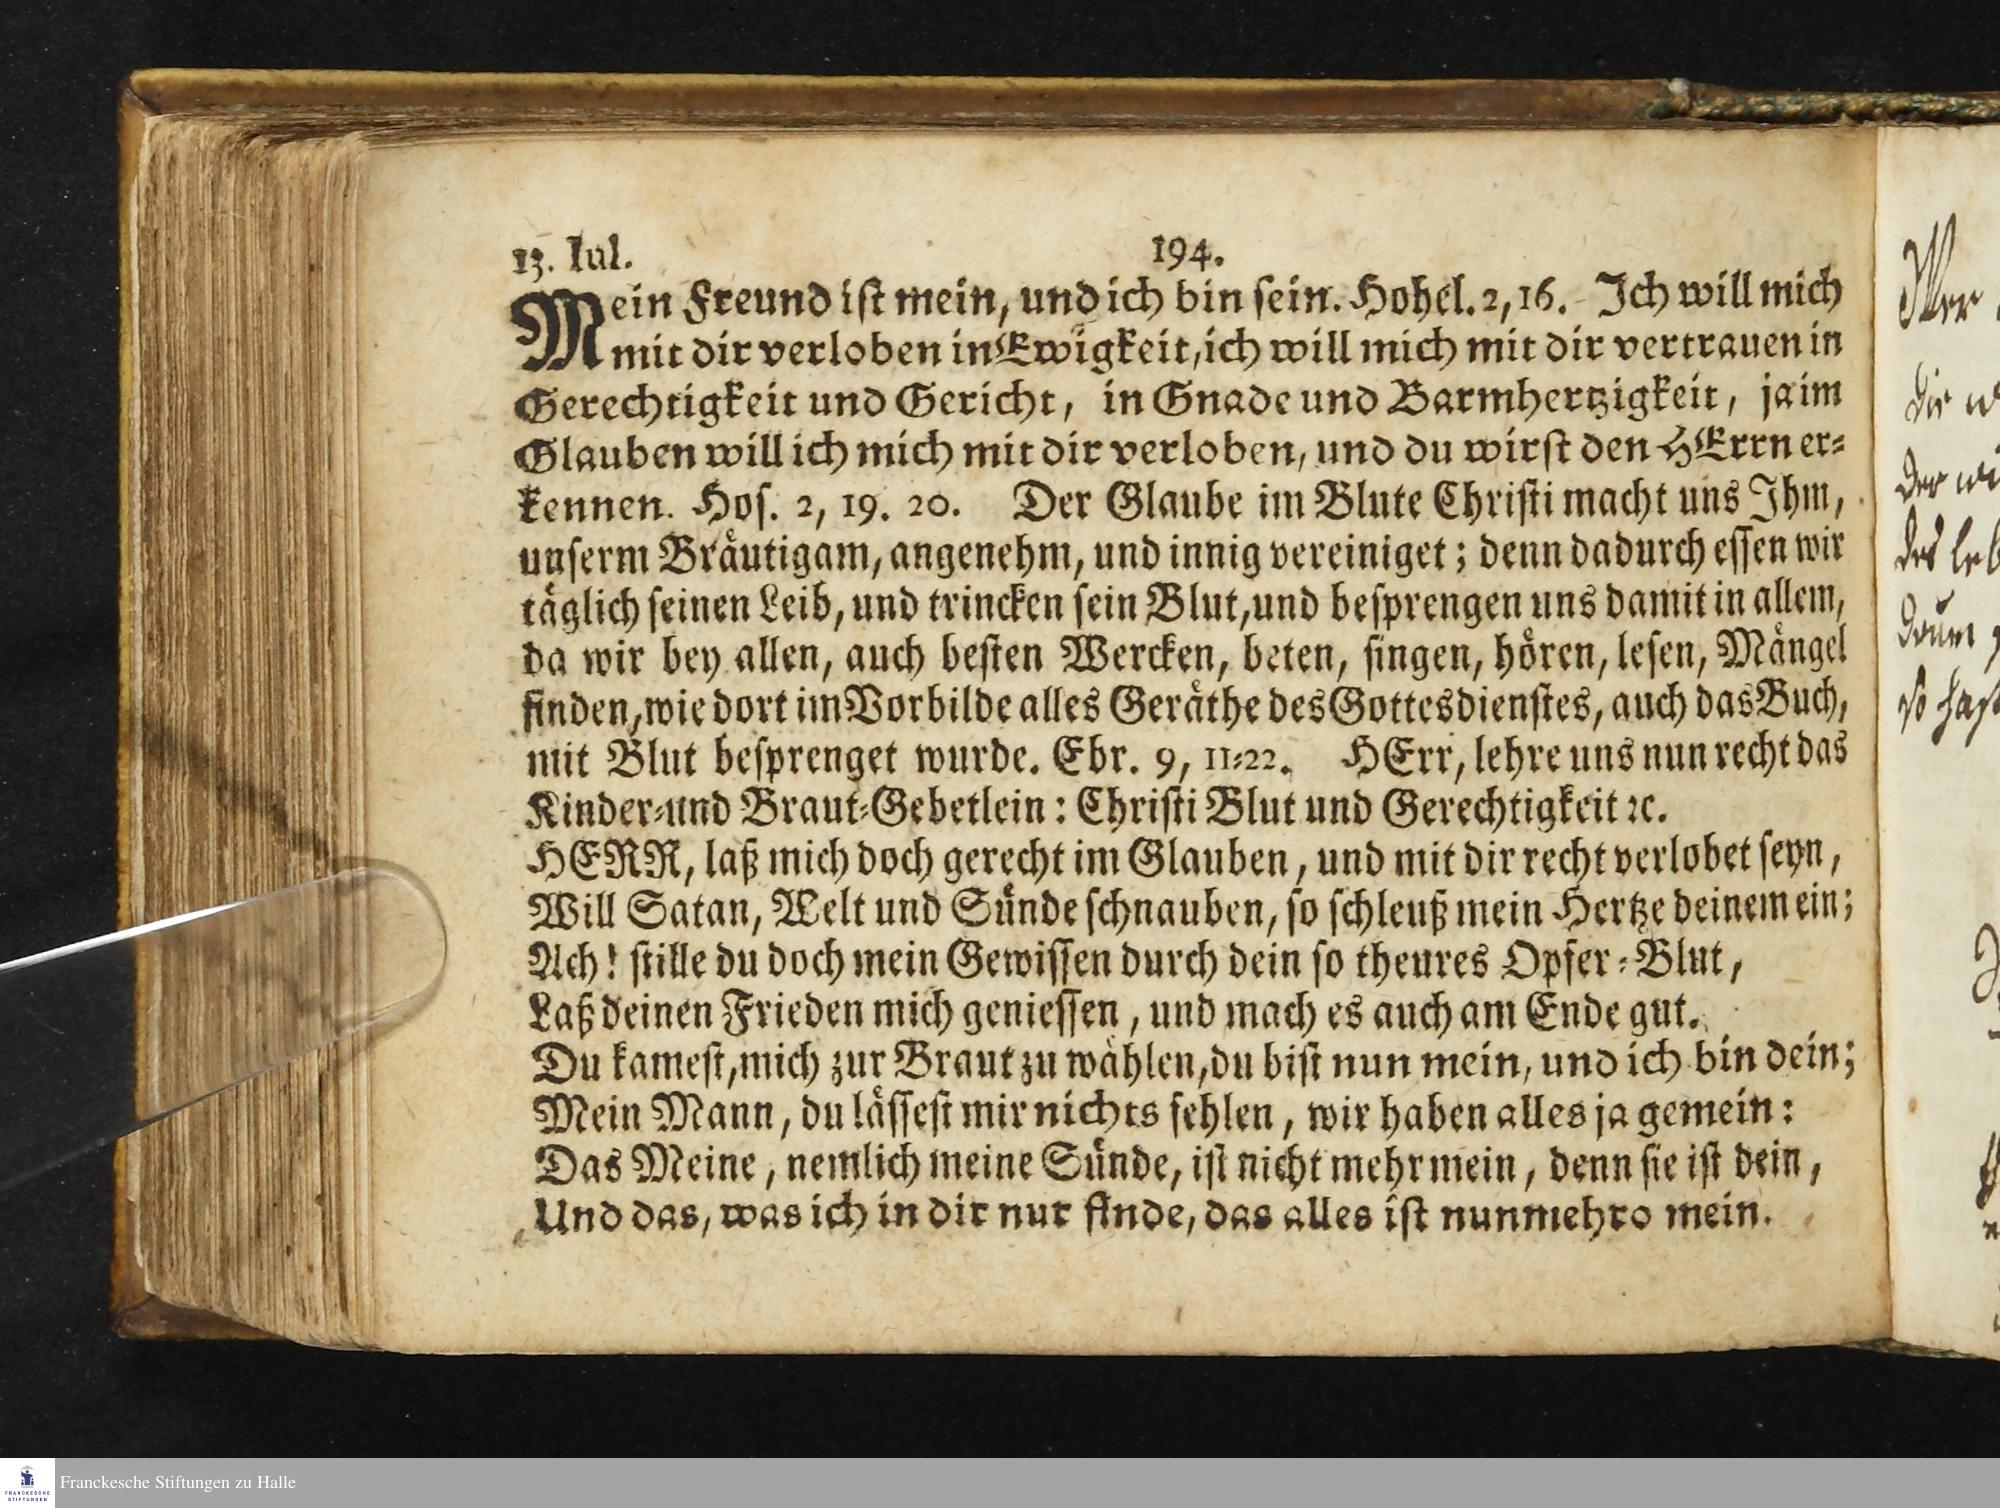 13. Iul. 194.
Mein Freund ist mein, und ich bin sein. Hohel. 2, 16. Ich will mich
mit dir verloben in Ewigkeit, ich will mich mit dir vertrauen in
Gerechtigkeit und Gericht, in Gnade und Barmhertzigkeit, ja im
Glauben will ich mich mit dir verloben, und du wirst den HErrn er-
kennen. Hos. 2, 19. 20. Der Glaube im Blute Christi macht uns Ihm,
unserm Bräutigam, angenehm, und innig vereiniget; denn dadurch essen wir
täglich seinen Leib, und trincken sein Blut, und besprengen uns damit in allem,
da wir bey allen, auch besten Wercken, beten, singen, hören, lesen, Mängel
finden, wie dort im Vorbilde alles Geräthe des Gottesdienstes, auch das Buch,
mit Blut besprenget wurde. Ebr. 9, 11-22. HErr, lehre uns nun recht das
Kinder-und Braut-Gebetlein: Christi Blut und Gerechtigkeit ꝛc.
HERR, laß mich doch gerecht im Glauben, und mit dir recht verlobet seyn,
Will Satan, Welt und Sünde schnauben, so schleuß mein Hertze deinem ein;
Ach! stille du doch mein Gewissen durch dein so theures Opfer-Blut,
Laß deinen Frieden mich geniessen, und mach es auch am Ende gut.
Du kamest, mich zur Braut zu wählen, du bist nun mein, und ich bin dein;
Mein Mann, du lässest mir nichts fehlen, wir haben alles ja gemein:
Das Meine, nemlich meine Sünde, ist nicht mehr mein, denn sie ist dein,
Und das, was ich in dir nur finde, das alles ist nunmehro mein.
Wer
die
der
des
drum
so
FRANCKESCHE
STIFTUNGEN
Franckesche Stiftungen zu Halle